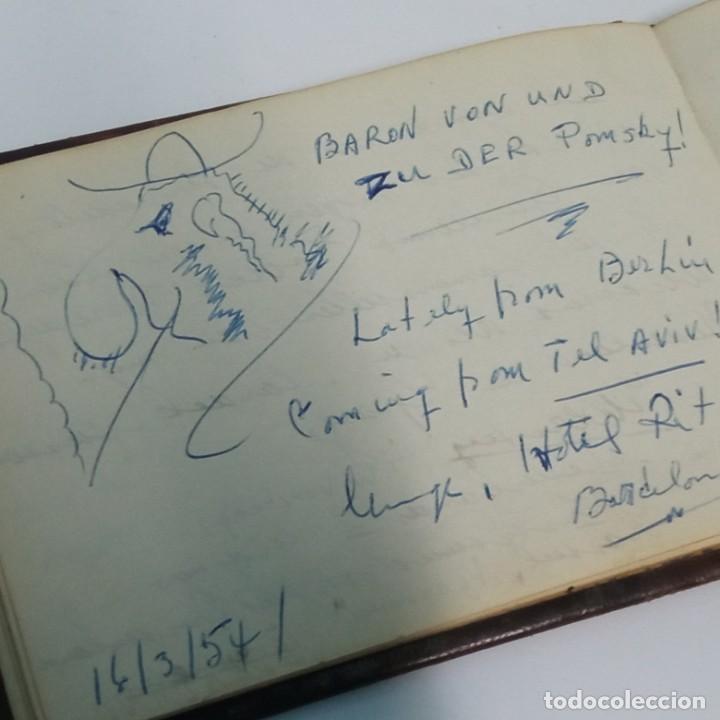 BARON VON UND
ZU DER Pomsky!
Lately from Berlin
Coming from TEL AVIV!
Hotel Rit
Barcelon
/3/54/
todocoleccion
todocoleccion.net